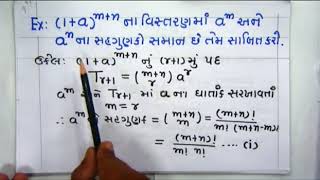 Ex: (1+a)^{m+n} ના વિસ્તરણમાં a^m અને
a^n ના સહગુણકો સમાન છે તેમ સાબિત કરો.
ઉકેલ: (1+a)^{m+n} નું (r+1) મું પદ
T_{r+1} = \binom{m+n}{r} a^r
a^m અને T_{r+1} માં a ના ઘાતાંક સરખાવતાં
m = r
∴ a^m નો સહગુણક = \binom{m+n}{m} = \frac{(m+n)!}{m! (m+n-m)!}
= \frac{(m+n)!}{m! n!} .... (i)